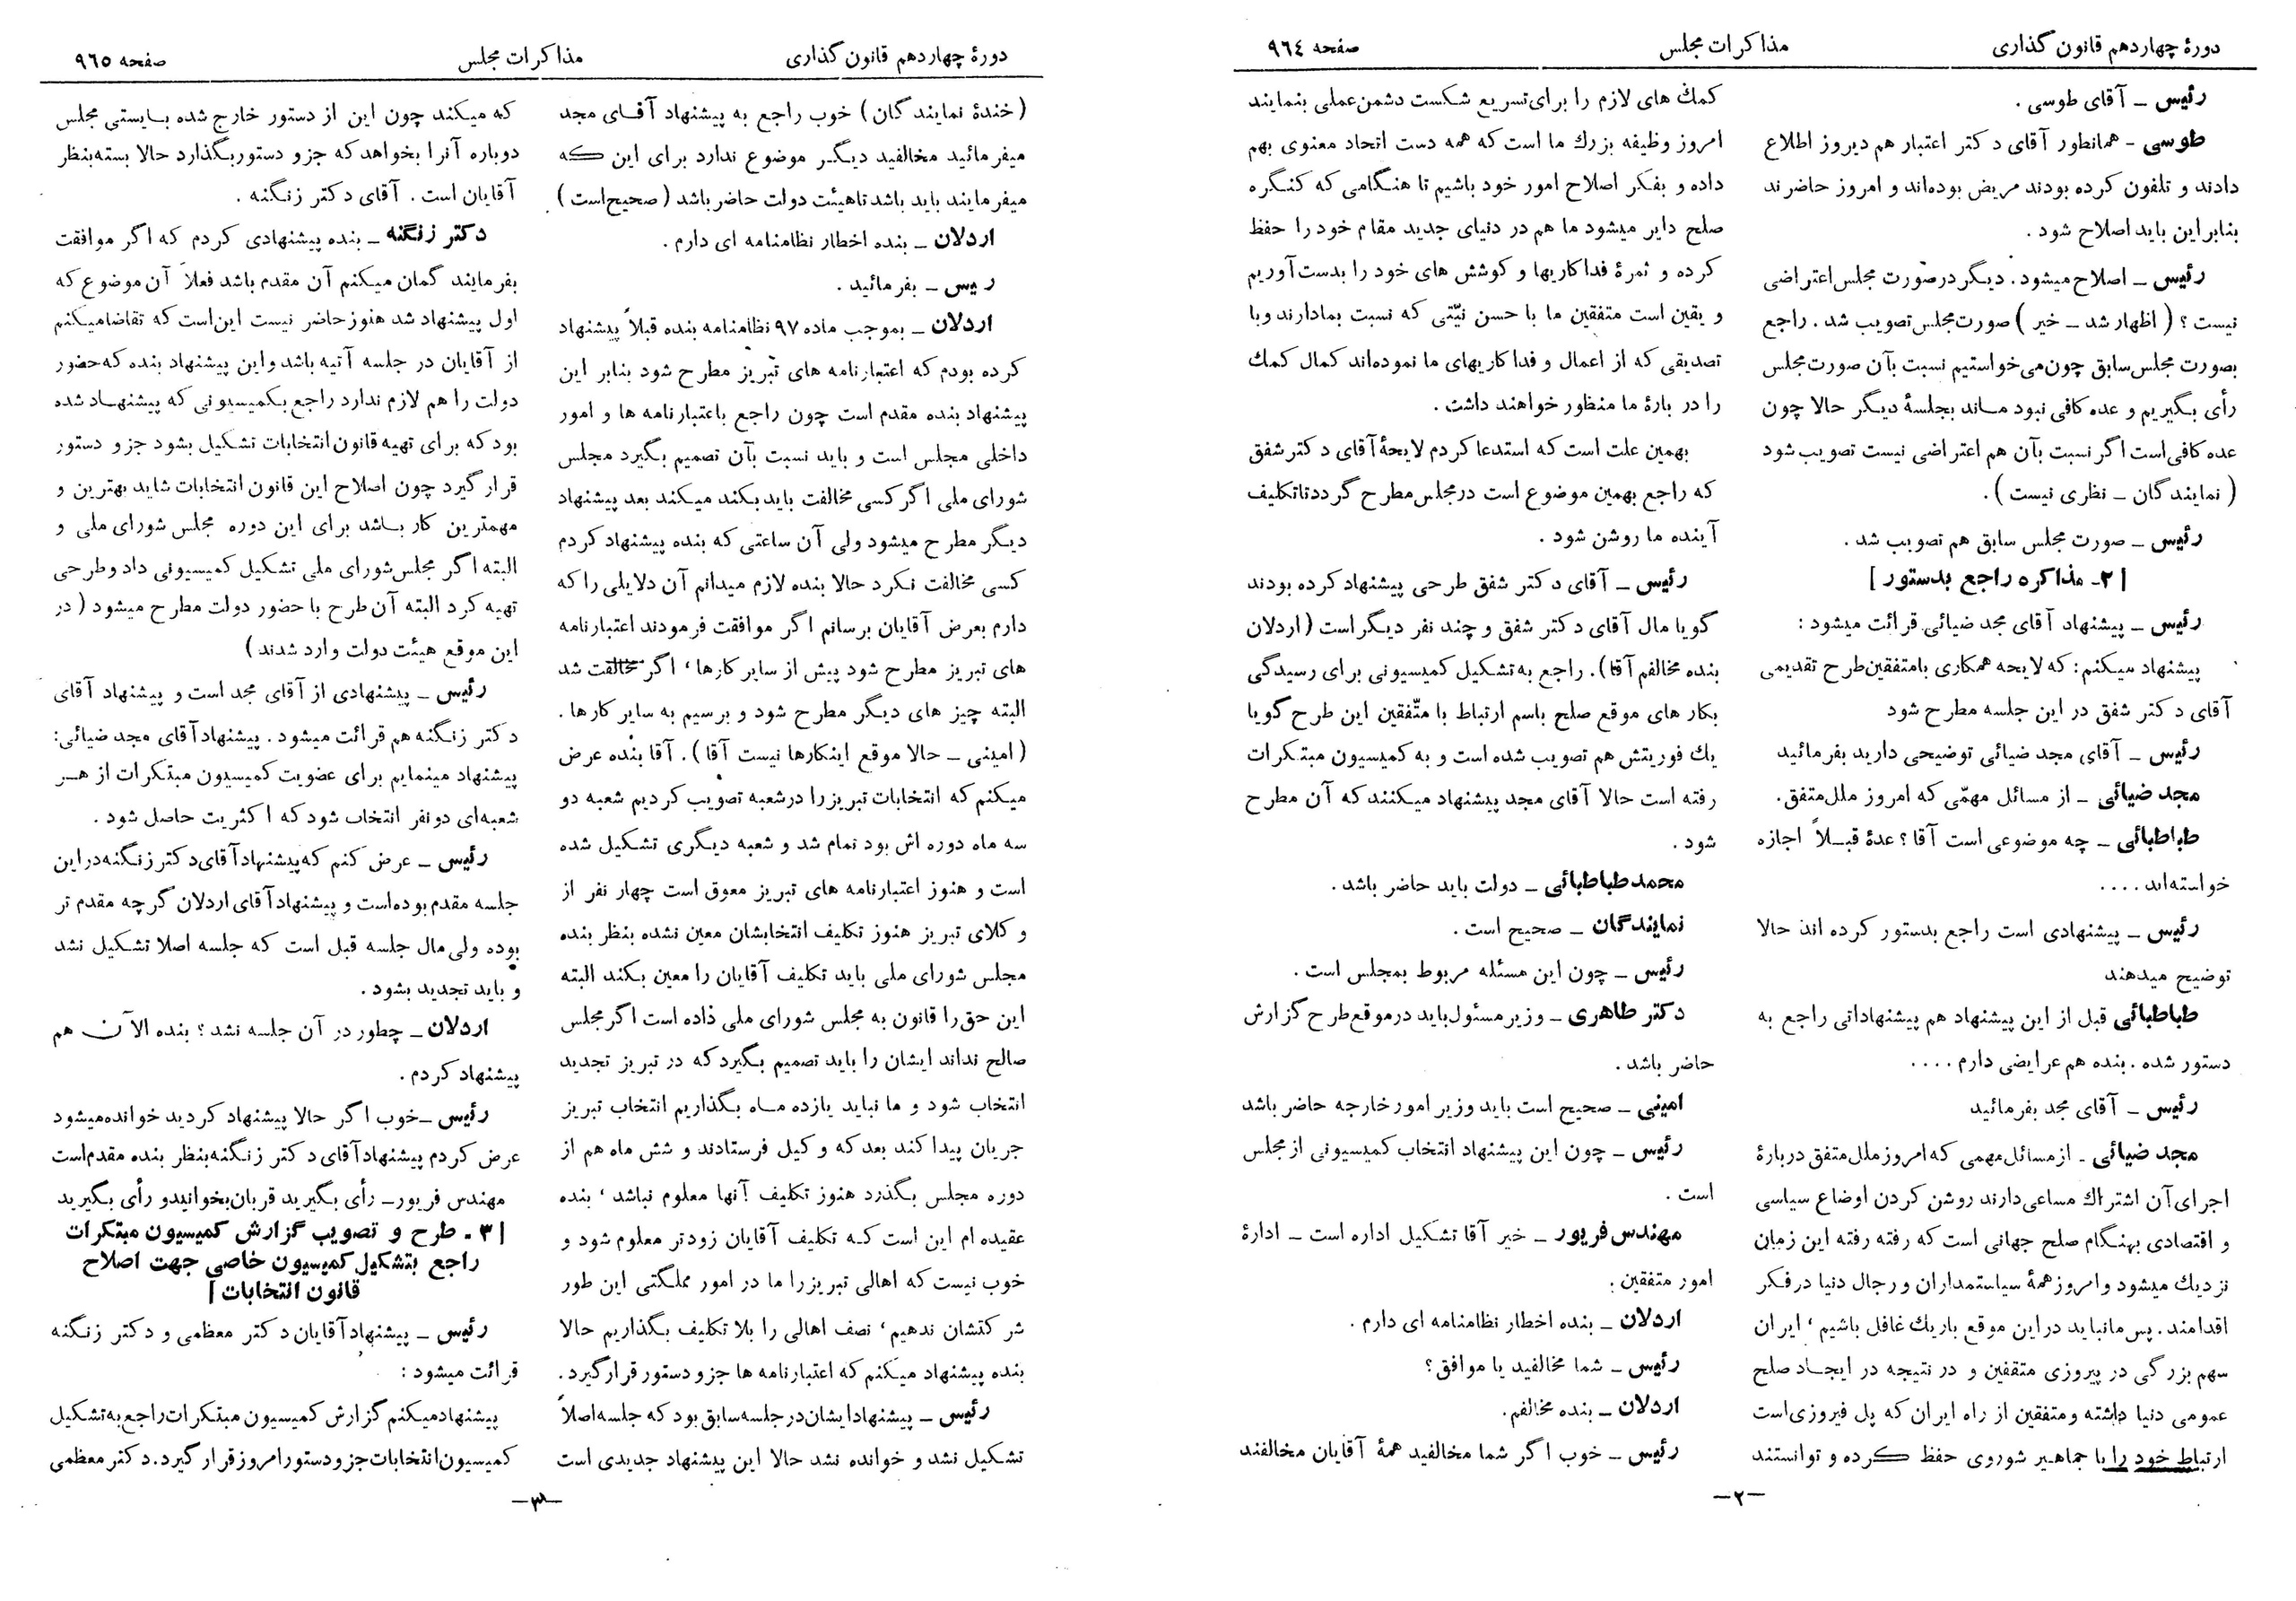 دورهٔ چهاردهم قانون گذاری
مذاکرات مجلس
صفحه ۹۶٤
رئیس ـ آقای طوسی .
طوسی ـ همانطور آقای دکتر اعتبار هم دیروز اطلاع
دادند و تلفون کرده بودند مریض بوده‌اند و امروز حاضرند
بنابراین باید اصلاح شود .
رئیس ـ اصلاح میشود . دیگر در صورت مجلس اعتراضی
نیست ؟ ( اظهار شد ـ خیر ) صورت مجلس تصویب شد . راجع
بصورت مجلس سابق چون می‌خواستیم نسبت بآن صورت مجلس
رأی بگیریم و عده کافی نبود ماند بجلسهٔ دیگر حالا چون
عده کافی است اگر نسبت بآن هم اعتراضی نیست تصویب شود
( نمایندگان ـ نظری نیست ) .
رئیس ـ صورت مجلس سابق هم تصویب شد .
[ ۲ـ مذاکره راجع بدستور ]
رئیس ـ پیشنهاد آقای مجد ضیائی قرائت میشود :
پیشنهاد میکنم : که لایحه همکاری با متفقین طرح تقدیمی
آقای دکتر شفق در این جلسه مطرح شود
رئیس ـ آقای مجد ضیائی توضیحی دارید بفرمائید
مجد ضیائی ـ از مسائل مهمّی که امروز ملل متفق .
طباطبائی ـ چه موضوعی است آقا ؟ عدهٔ قبـلاً اجازه
خواسته‌اند ....
رئیس ـ پیشنهادی است راجع بدستور کرده اند حالا
توضیح میدهند
طباطبائی قبل از این پیشنهاد هم پیشنهاداتی راجع به
دستور شده . بنده هم عرایضی دارم ....
رئیس ـ آقای مجد بفرمائید
مجد ضیائی ـ از مسائل مهمی که امروز ملل متفق دربارهٔ
اجرای آن اشتراك مساعی دارند روشن کردن اوضاع سیاسی
و اقتصادی بهنگام صلح جهانی است که رفته رفته این زمان
نزدیك میشود و امروز همهٔ سیاستمداران و رجال دنیا در فکر
اقدامند . پس ما نباید در این موقع باریك غافل باشیم ، ایران
سهم بزرگی در پیروزی متفقین و در نتیجه در ایجـاد صلح
عمومی دنیا داشته و متفقین از راه ایران که پل فیروزی است
ارتباط خود را با جماهـیر شوروی حفظ کـرده و توانستند
کمك های لازم را برای تسریع شکست دشمن عملی بنمایند
امروز وظیفه بزرك ما است که همه دست اتحاد معنوی بهم
داده و بفکر اصلاح امور خود باشیم تا هنگامی که کنگره
صلح دایر میشود ما هم در دنیای جدید مقام خود را حفظ
کرده و ثمرهٔ فداکاریها و کوشش های خود را بدست آوریم
و یقین است متفقین ما با حسن نیّتی که نسبت بما دارند و با
تصدیقی که از اعمال و فداکاریهای ما نموده‌اند کمال کمك
را در بارهٔ ما منظور خواهند داشت .
بهمین علت است که استدعا کردم لایحهٔ آقای دکتر شفق
که راجع بهمین موضوع است در مجلس مطرح گردد تا تکلیف
آینده ما روشن شود .
رئیس ـ آقای دکتر شفق طرحی پیشنهاد کرده بودند
گویا مال آقای دکتر شفق و چند نفر دیگر است ( اردلان
بنده مخالفم آقا ) . راجع به تشکیل کمیسیونی برای رسیدگی
بکار های موقع صلح باسم ارتباط با متّفقین این طرح گویا
یك فوریتش هم تصویب شده است و به کمیسیون مبتکرات
رفته است حالا آقای مجد پیشنهاد میکنند که آن مطرح
شود .
محمد طباطبائی ـ دولت باید حاضر باشد .
نمایندگان ـ صحیح است .
رئیس ـ چون این مسئله مربوط بمجلس است .
دکتر طاهری ـ وزیر مسئول باید در موقع طرح گزارش
حاضر باشد .
امینی ـ صحیح است باید وزیر امور خارجه حاضر باشد
رئیس ـ چون این پیشنهاد انتخاب کمیسیونی از مجلس
است .
مهندس فریور ـ خیر آقا تشکیل اداره است ـ ادارهٔ
امور متفقین .
اردلان ـ بنده اخطار نظامنامه ای دارم .
رئیس ـ شما مخالفید یا موافق ؟
اردلان ـ بنده مخالفم .
رئیس ـ خوب اگر شما مخالفید همهٔ آقایان مخالفند
ـ۲ـ
دورهٔ چهاردهم قانون گذاری
مذاکرات مجلس
صفحه ۹۶٥
( خندهٔ نمایندگان ) خوب راجع به پیشنهاد آقـای مجد
میفرمائید مخالفید دیگـر موضوع ندارد برای این کـه
میفرمایند باید باشد تا هیئت دولت حاضر باشد ( صحیح است ) .
اردلان ـ بنده اخطار نظامنامه ای دارم .
ریس ـ بفرمائید .
اردلان ـ بموجب ماده ۹۷ نظامنامه بنده قبلاً پیشنهاد
کرده بودم که اعتبارنامه های تبریز مطرح شود بنابر این
پیشنهاد بنده مقدم است چون راجع باعتبارنامه ها و امور
داخلی مجلس است و باید نسبت بآن تصمیم بگیرد مجلس
شورای ملی اگر کسی مخالفت باید بکند میکند بعد پیشنهاد
دیگر مطرح میشود ولی آن ساعتی که بنده پیشنهاد کردم
کسی مخالفت نکرد حالا بنده لازم میدانم آن دلایلی را که
دارم بعرض آقایان برسانم اگر موافقت فرمودند اعتبارنامه
های تبریز مطرح شود پیش از سایر کارها ، اگر مخالفت شد
البته چیز های دیگر مطرح شود و برسیم به سایر کارها .
( امینی ـ حالا موقع اینکارها نیست آقا ) . آقا بنده عرض
میکنم که انتخابات تبریز را در شعبه تصویب کردیم شعبه دو
سه ماه دوره اش بود تمام شد و شعبه دیگری تشکیل شده
است و هنوز اعتبارنامه های تبریز معوق است چهار نفر از
وکلای تبریز هنوز تکلیف انتخابشان معین نشده بنظر بنده
مجلس شورای ملی باید تکلیف آقایان را معین بکند البته
این حق را قانون به مجلس شورای ملی داده است اگر مجلس
صالح نداند ایشان را باید تصمیم بگیرد که در تبریز تجدید
انتخاب شود و ما نباید یازده مـاه بگذاریم انتخاب تبریز
جریان پیدا کند بعد که وکیل فرستادند و شش ماه هم از
دوره مجلس بگذرد هنوز تکلیف آنها معلوم نباشد ، بنده
عقیده ام این است کـه تکلیف آقایان زودتر معلوم شود و
خوب نیست که اهالی تبریز را ما در امور مملگتی این طور
شرکتشان ندهیم ، نصف اهالی را بلا تکلیف بگذاریم حالا
بنده پیشنهاد میکنم که اعتبارنامه ها جزو دستور قرار گیرد .
رئیس ـ پیشنهاد ایشان در جلسه سابق بود که جلسه اصلاً
تشکیل نشد و خوانده نشد حالا این پیشنهاد جدیدی است
که میکند چون این از دستور خارج شده بـایستی مجلس
دوباره آنرا بخواهد که جزو دستور بگذارد حالا بسته بنظر
آقایان است . آقای دکتر زنگنه .
دکتر زنگنه ـ بنده پیشنهادی کردم که اگر موافقت
بفرمایند گمان میکنم آن مقدم باشد فعلاً آن موضوع که
اول پیشنهاد شد هنوز حاضر نیست این است که تقاضا میکنم
از آقایان در جلسه آتیه باشد و این پیشنهاد بنده که حضور
دولت را هم لازم ندارد راجع بکمیسیونی که پیشنهـاد شده
بود که برای تهیه قانون انتخابات تشکیل بشود جزو دستور
قرار گیرد چون اصلاح این قانون انتخابات شاید بهترین و
مهمترین کار بـاشد برای این دوره مجلس شورای ملی و
البته اگر مجلس شورای ملی تشکیل کمیسیونی داد و طرحی
تهیه کرد البته آن طرح با حضور دولت مطرح میشود ( در
این موقع هیئت دولت وارد شدند )
رئیس ـ پیشنهادی از آقای مجد است و پیشنهاد آقای
دکتر زنگنه هم قرائت میشود . پیشنهاد آقای مجد ضیائی :
پیشنهاد مینمایم برای عضویت کمیسیون مبتکرات از هـر
شعبه‌ای دو نفر انتخاب شود که اکثریت حاصل شود .
رئیس ـ عرض کنم که پیشنهاد آقای دکتر زنگنه در این
جلسه مقدم بوده است و پیشنهاد آقای اردلان گرچه مقدم تر
بوده ولی مال جلسه قبل است که جلسه اصلا تشکیل نشد
و باید تجدید بشود .
اردلان ـ چطور در آن جلسه نشد ؟ بنده الآن هم
پیشنهاد کردم .
رئیس ـ خوب اگر حالا پیشنهاد کردید خوانده میشود
عرض کردم پیشنهاد آقای دکتر زنگنه بنظر بنده مقدم است
مهندس فریور ـ رأی بگیرید قربان بخوانید و رأی بگیرید
[ ۳ ـ طرح و تصویب گزارش کمیسیون مبتکرات
راجع بتشکیل کمیسیون خاصی جهت اصلاح
قانون انتخابات ]
رئیس ـ پیشنهاد آقایان دکتر معظمی و دکتر زنگنه
قرائت میشود :
پیشنهاد میکنم گزارش کمیسیون مبتکرات راجع به تشکیل
کمیسیون انتخابات جزو دستور امروز قرار گیرد . دکتر معظمی
ـ۳ـ